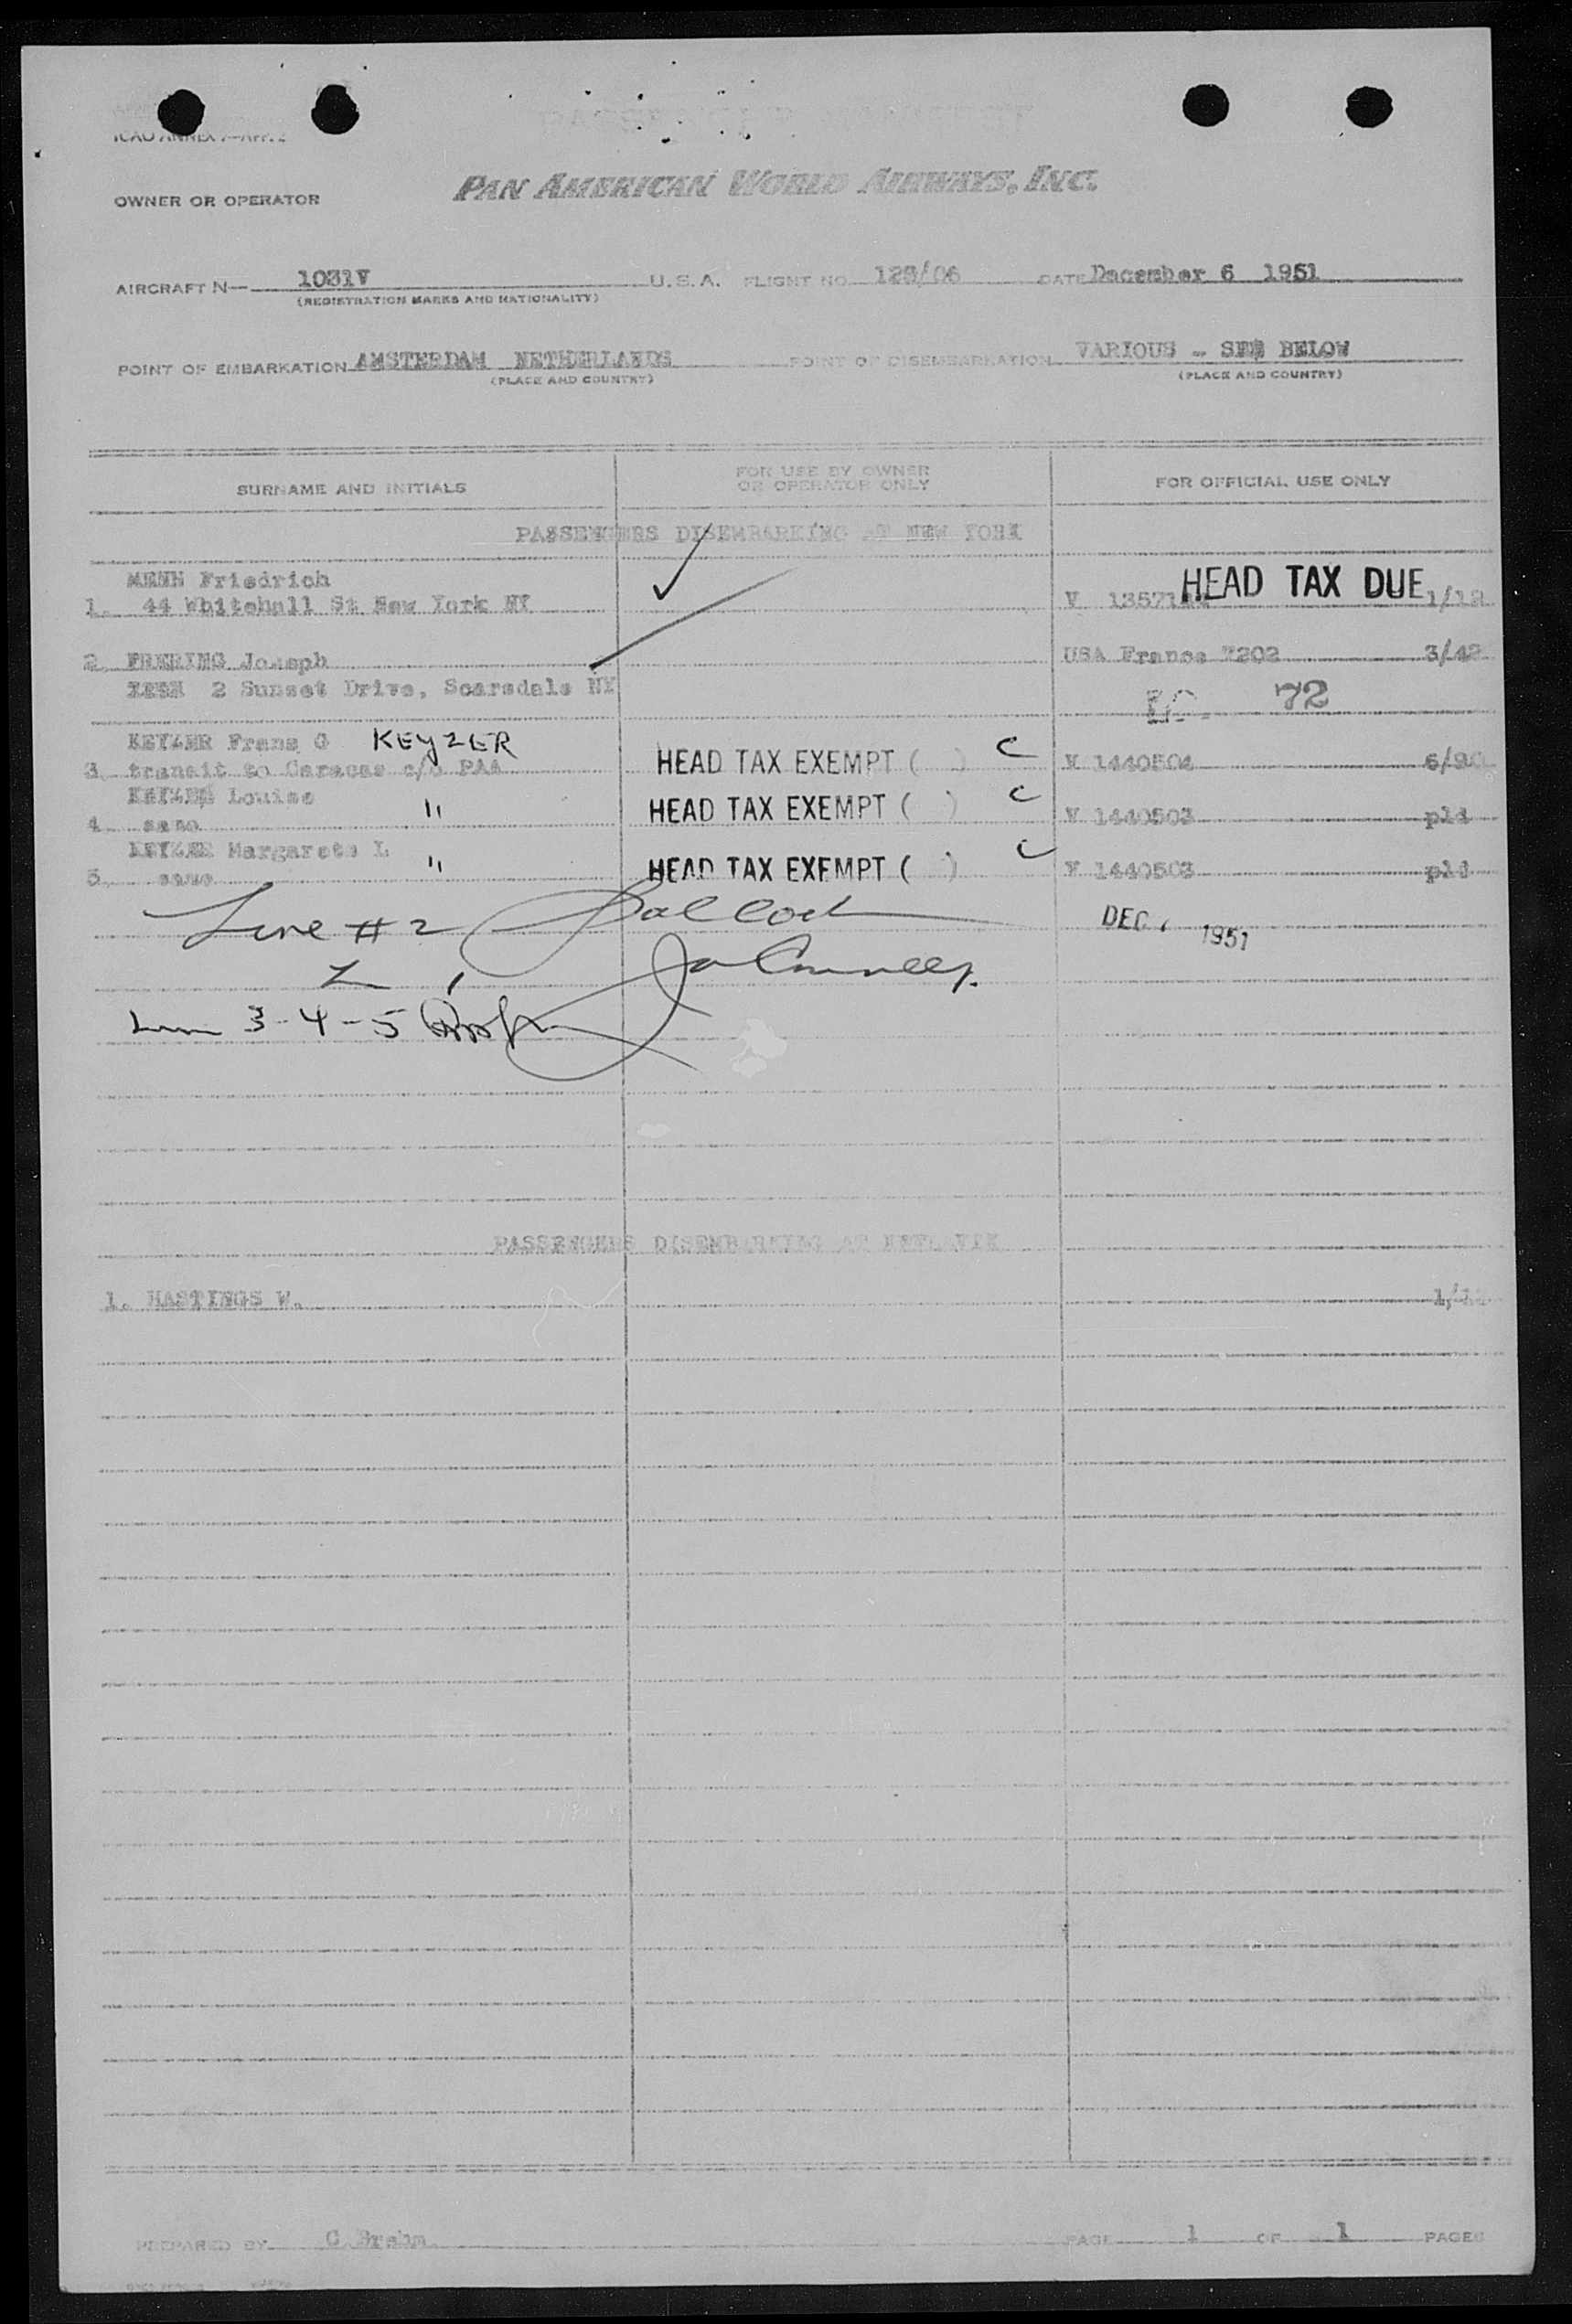 ICAO ANNEX
PAN AMERICAN WORLD AIRWAYS, INC.
OWNER OR OPERATOR
AIRCRAFT N— 1031V U.S.A. FLIGHT NO. DATE December 6 1951
(REGISTRATION MARKS AND NATIONALITY)
POINT OF EMBARKATION AMSTERDAM NETHERLANDS POINT OF DISEMBARKATION VARIOUS - SEE BELOW
(PLACE AND COUNTRY) (PLACE AND COUNTRY)
SURNAME AND INITIALS FOR USE BY OWNER OR OPERATOR ONLY FOR OFFICIAL USE ONLY
PASSENGERS DISEMBARKING AT NEW YORK
Friedrich HEAD TAX DUE
1. 44 Whitehall St New York NY V 1/12
2. Joseph USA France 3/42
2 Sunset Drive, Scarsdale NY 72
KEYZER Frans G KEYZER
3. transit to Caracas c/o PAA HEAD TAX EXEMPT ( ) C V 1440504
Louise " HEAD TAX EXEMPT ( ) C
4. same V 1440503
Margarete L " HEAD TAX EXEMPT ( ) C
5. same V 1440503
Line # 2 DEC, 1951
3-4-5
PASSENGERS DISEMBARKING AT KEFLAVIK
1. HASTINGS W.
PREPARED BY C Brehm PAGE 1 OF 1 PAGES